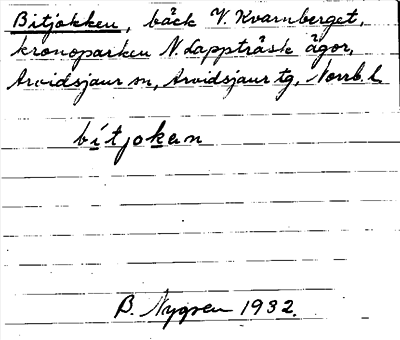 Bitjokken, bäck V. Kvarnberget,
kronoparken N. Lappträsk ägor,
Arvidsjaur sn, Arvidsjaur tg, Norrb. l.
bitjokɘn
B. Nygren 1932.